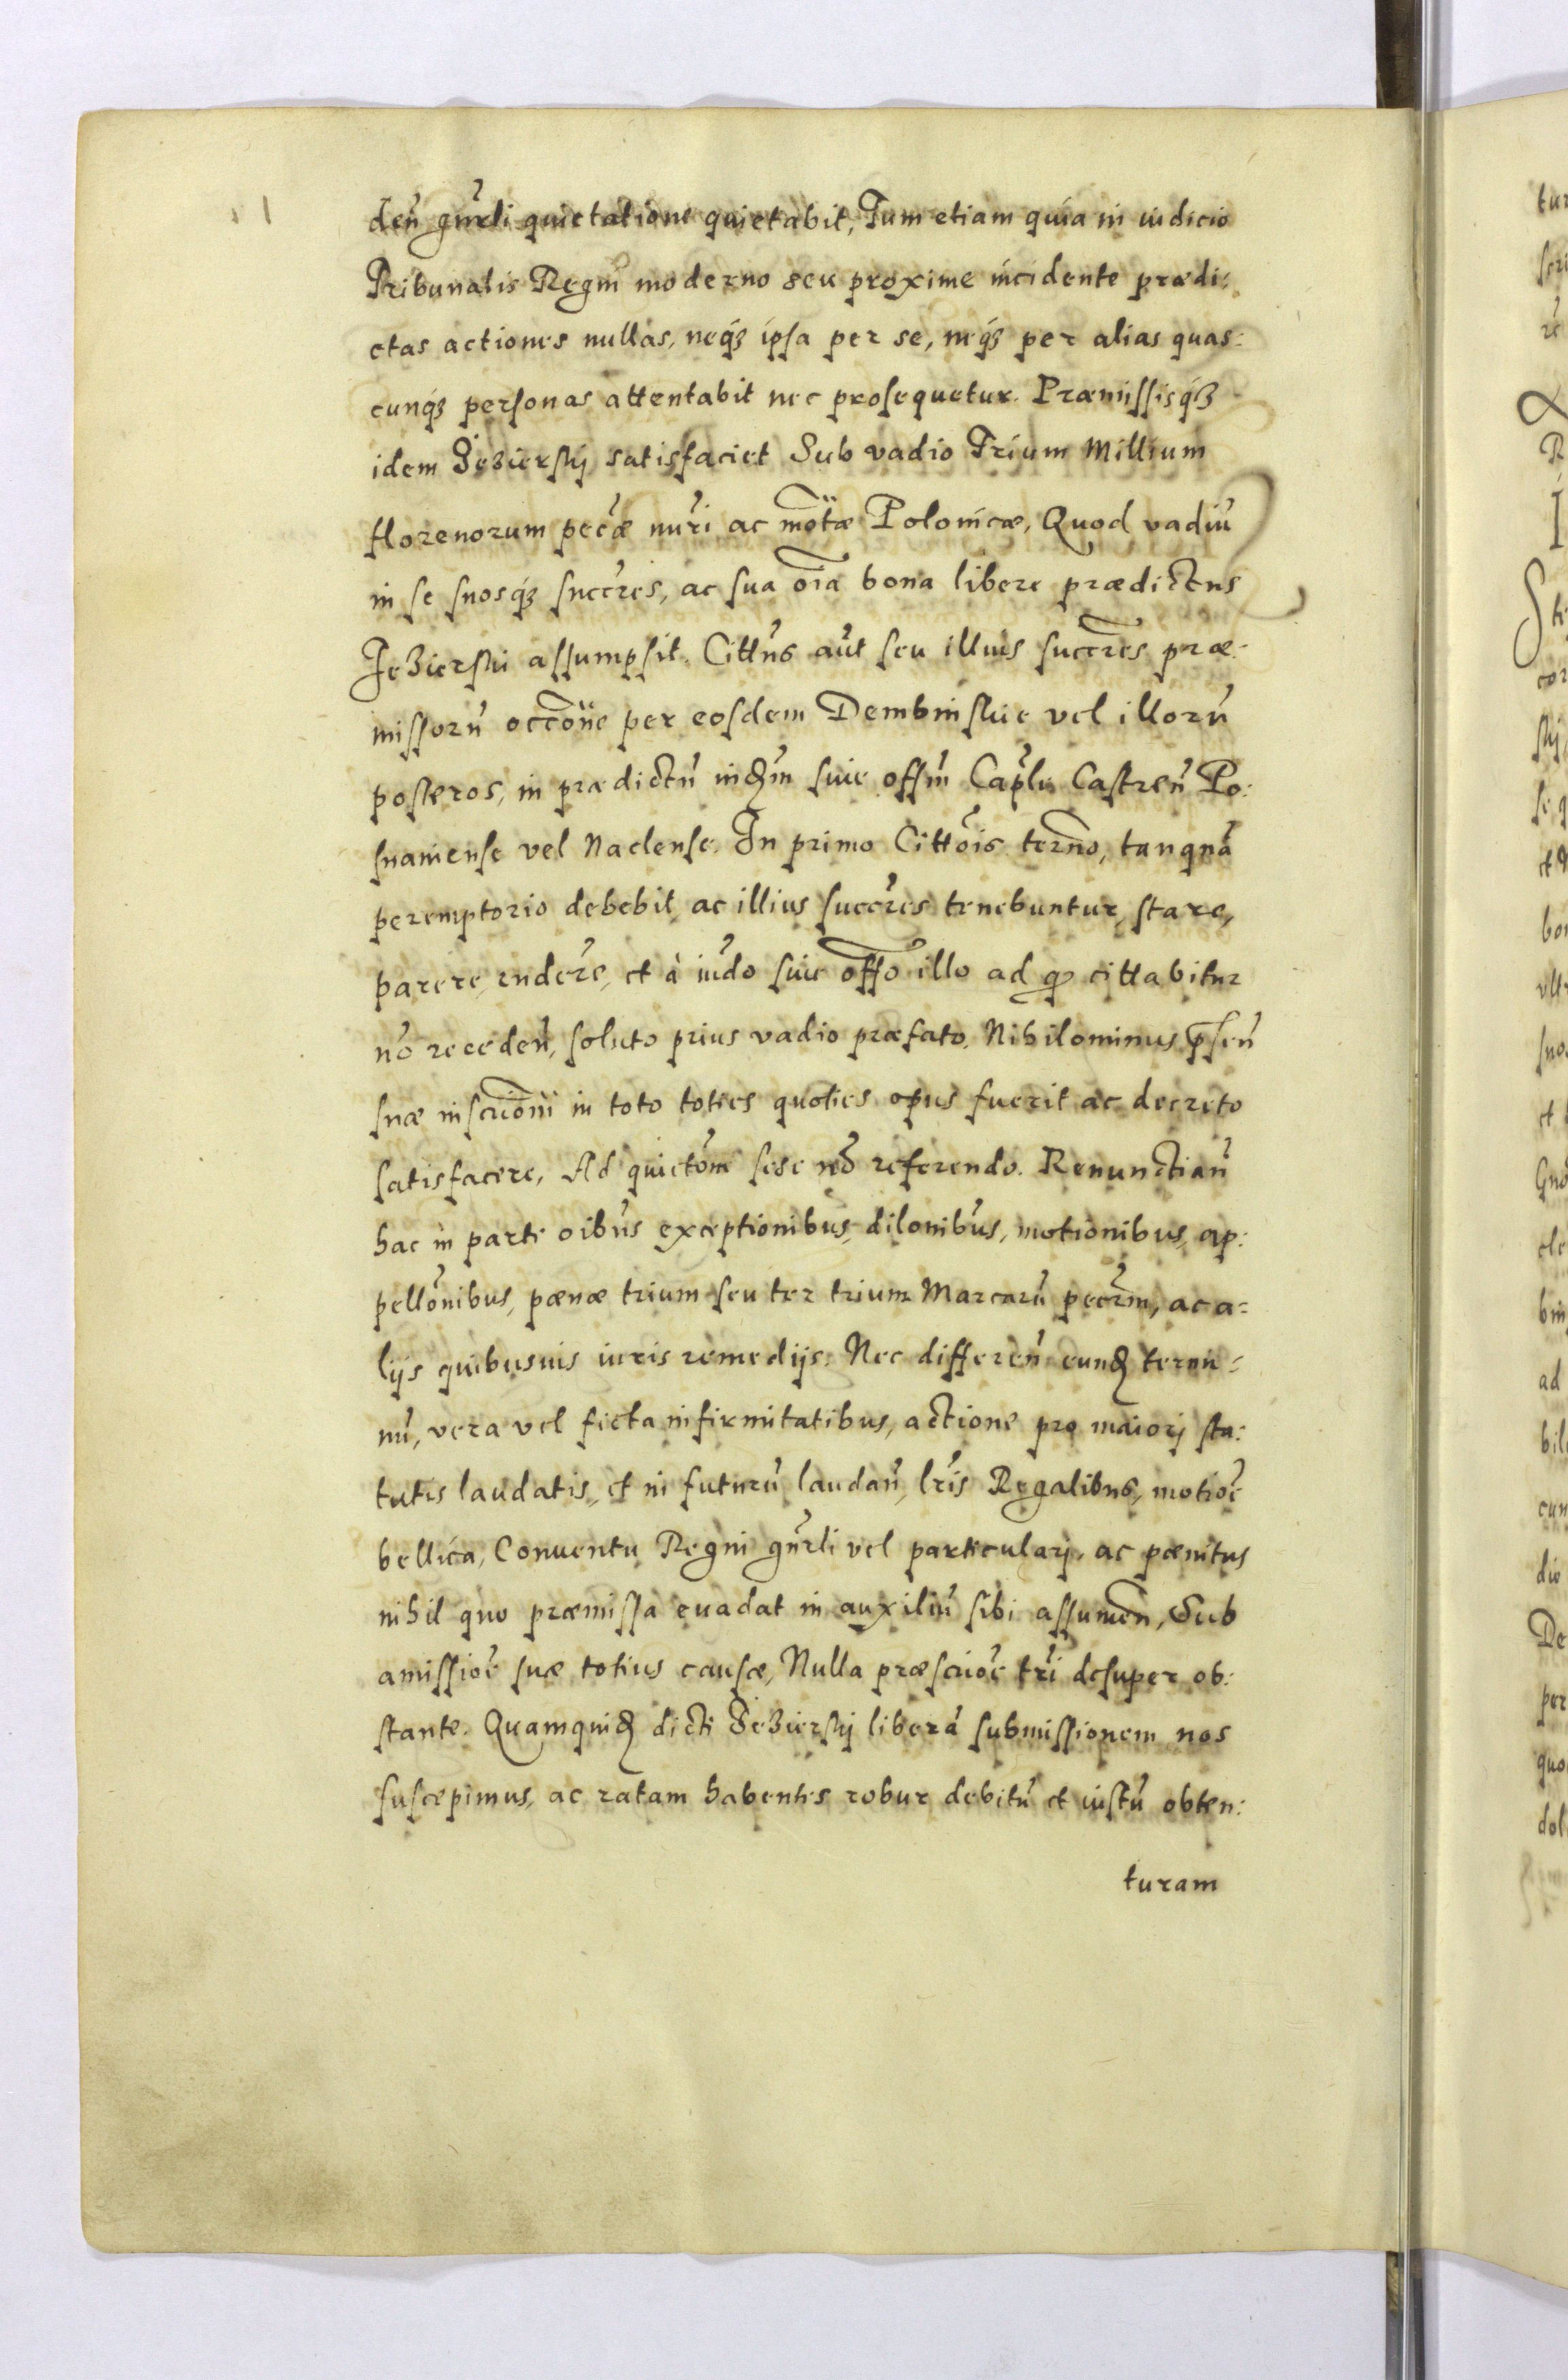 deñ gnrli quietatione quietabit, Tum etiam quia in iudicio
Tribunalis Regni moderno seu proxime incidente prædi:
ctas actiones nullas, neq́ʒ ipsa per se, neq́ʒ per alias quas:
cunq́ʒ personas attentabit nec prosequetur. Præmissisq́ʒ
idem Jezierskj satisfaciet Sub vadio Trium Millium
florenorum pecæ nuri ac motæ Polonicæ, Quod vadiũ
in se suosq́ʒ succres, ac sua oĩa bona libere prædictus
Jezierski assumpsit. Cittus aut seu illius succres præ:
missorũ occõne per eosdem Dembinskie vel illorũ
posteros, in prædictũ indm siue offm Caplu Castreñ Po:
snaniense vel Naclense. In primo Cittõis terno, tanquã
peremptorio debebit ac illius succres tenebuntur, stare,
parere, rndere, et à iudo siue offo illo ad qꝫ cittabitur
nõ receden̄, soluto prius vadio præfato, Nihilominus pñseñ
suæ inscrioni in toto toties quoties opus fuerit ac decreto
satisfacere, Ad quietõm sese nõ referendo. Renunctiañ
hac in parte oibus exceptionibus, dilonibus, motionibus, ap:
pellõnibus, pænæ trium seu ter trium Marcarũ pecrm, ac a=
lijs quibusuis iuris remedijs. Nec differeñ eund termi=
nũ, vera vel ficta infirmitatibus, actione pro maiorj sta:
tutis laudatis, et in futurũ laudañ, lris Regalibus, motioẽ
bellica, Conuentu Regni gnrli vel particularj, ac pænitus
nihil quo præmissa euadat in auxiliũ sibi assumeñ, Sub
amissioẽ suæ totius causæ, Nulla præscrioẽ tri desuper ob:
stante. Quamquid dicti Jezierskj liberã submissionem nos
suscepimus, ac ratam habentes robur debitũ et iustũ obten:
turam